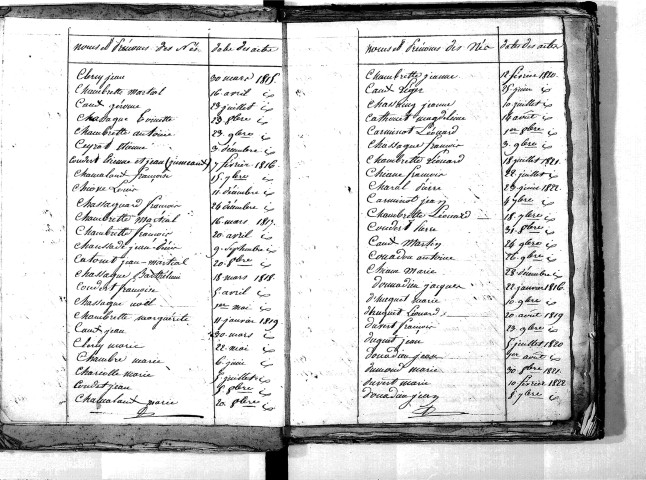 noms et Prénoms des Nés date des actes
Clery jean 30 mars 1815
Chambrette martial 16 avril id
Caux gérome 13 juillet id
Chassaque Toinette 23 8bre id
Chambrette antoine 23 9bre id
Ceyrat étienne 3 décembre id
Coudert Etienne et jean (jumeaux) 7 février 1816
Chaualant françoise 15 9bre id
Chieze Louis 11 décembre id
Chassaguard françois 24 décembre id
Chambrette Martial 16 mars 1817
Chambrette françois 20 avril id
Chaussade jean 9 Septembre id
Catonet jean-martial 20 8bre id
Chassaque Barthélemi 18 mars 1818
Coudert françoise 5 avril id
Chassaque noël 1er mai id
Chambrette marguerite 11 janvier 1819
Caux jean 30 mars id
Clery marie 22 mai id
Chambre marie 6 juin id
Charcelle marie 5 juillet id
Coudert jean 8 8bre id
Chaualant marie 20 8bre id
noms et Prénoms des Nés dates des actes
Chambrette jeanne 12 février 1820
Caux Léger 25 juin id
Chassaing jeanne 10 juillet id
Cathonet magdeleine 14 août id
Carminot Léonard 1er 9bre id
Chassaque françois 3 9bre id
Chambrette Léonard 18 juillet 1821
Chieze françois 22 juillet id
Charel Pierre 23 juin 1822
Carminot jean 4 9bre id
Chambrette Léonard 18 9bre id
Coudert Pierre 31 8bre id
Caux Martin 24 9bre id
Couadou antoine 26 9bre id
Chaux Marie 28 décembre id
Douadieu jacques 22 janvier 1816
d'huguet marie 10 9bre id
d'huguet Léonard 20 août 1819
duvert françois 23 9bre id
duguet jean 5 juillet 1820
douadieu jean 1er août id
dumond marie 30 8bre 1821
duvert marie 10 février 1822
douadieu jean 8 9bre id